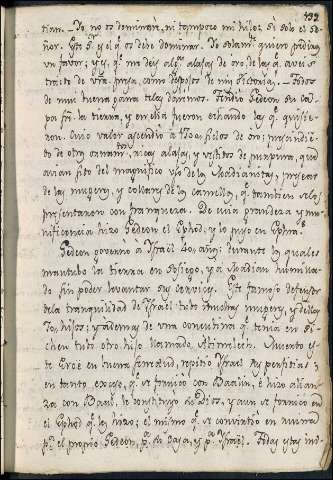 132
tian. - Yo no os dominaré, ni tampoco mi hijo; si solo el Se-
ñor. Este Sr. es el q.e os debe dominar. Yo solam.te quiero pediros
un favor; y es, q.e me deis alg.s alajas de oro de las q.e aveis
traido de vra. presa, como despojos de mis Victorias. - Todos
de mui buena gana te las daremos. Tendió Gedeon su ca-
pa en la tierra, y en ella fueron echando las q.e quisie-
ron. Cuio valor ascendio à 1700 siclos de oro; prescindien-
do de otros ornam.tos, ricas alajas, y vestidos de purpura, que
avian sido del magnifico uso de los Madianitas, preseas
de las mugeres, y collares de los camellos, q.e tambien se le
presentaron con franqueza. De cuia grandeza y mu-
nificencia hizo Gedeon el Ephod, y lo puso en Ephra.
Gedeon governò à Israèl 40, años: durante los quales
mantubo la tierra en sosiego, y à Madian humilla-
do sin poder levantar su cerviz. Este famoso defensor
de la tranquilidad de Israèl tubo muchas mugeres, y de ellas
70, hijos; y ademas de una concubina q.e tenia en Si-
chen tubo otro hijo llamado Abimelech. Muerto es-
te Eroe en buena senectud, repitió Israel sus perfidias; y
en tanto exceso, q.e se fornicó con Baalin, è hizo alian-
za con Baal, le constituyó su Dios, y aun se fornicó en
el Ephod q.e les hizo; el mismo q.e se convirtió en ruina
p.a el propio Gedeon, p.a su casa, y p.a Israel. Todas estas mal-